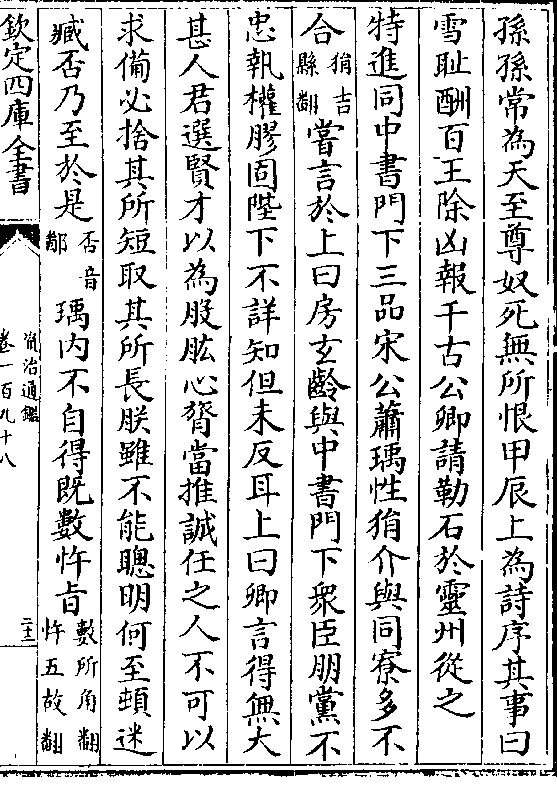 孫孫常為天至尊奴死無所恨甲辰上為詩序其事曰
雪耻酬百王除凶報千古公卿請勒石於靈州從之
特進同中書門下三品宋公蕭瑀性狷介與同寮多不
合狷吉縣翻嘗言於上曰房玄齡與中書門下衆臣朋黨不
忠執權膠固陛下不詳知但未反耳上曰卿言得無大
甚人君選賢才以為股肱心膂當推誠任之人不可以
求備必捨其所短取其所長朕雖不能聰明何至頓迷
臧否乃至於是否音鄙瑀内不自得既數忤旨數所角翻忤五故翻
欽定四庫全書
資治通鑑
卷一百九十八
二十二